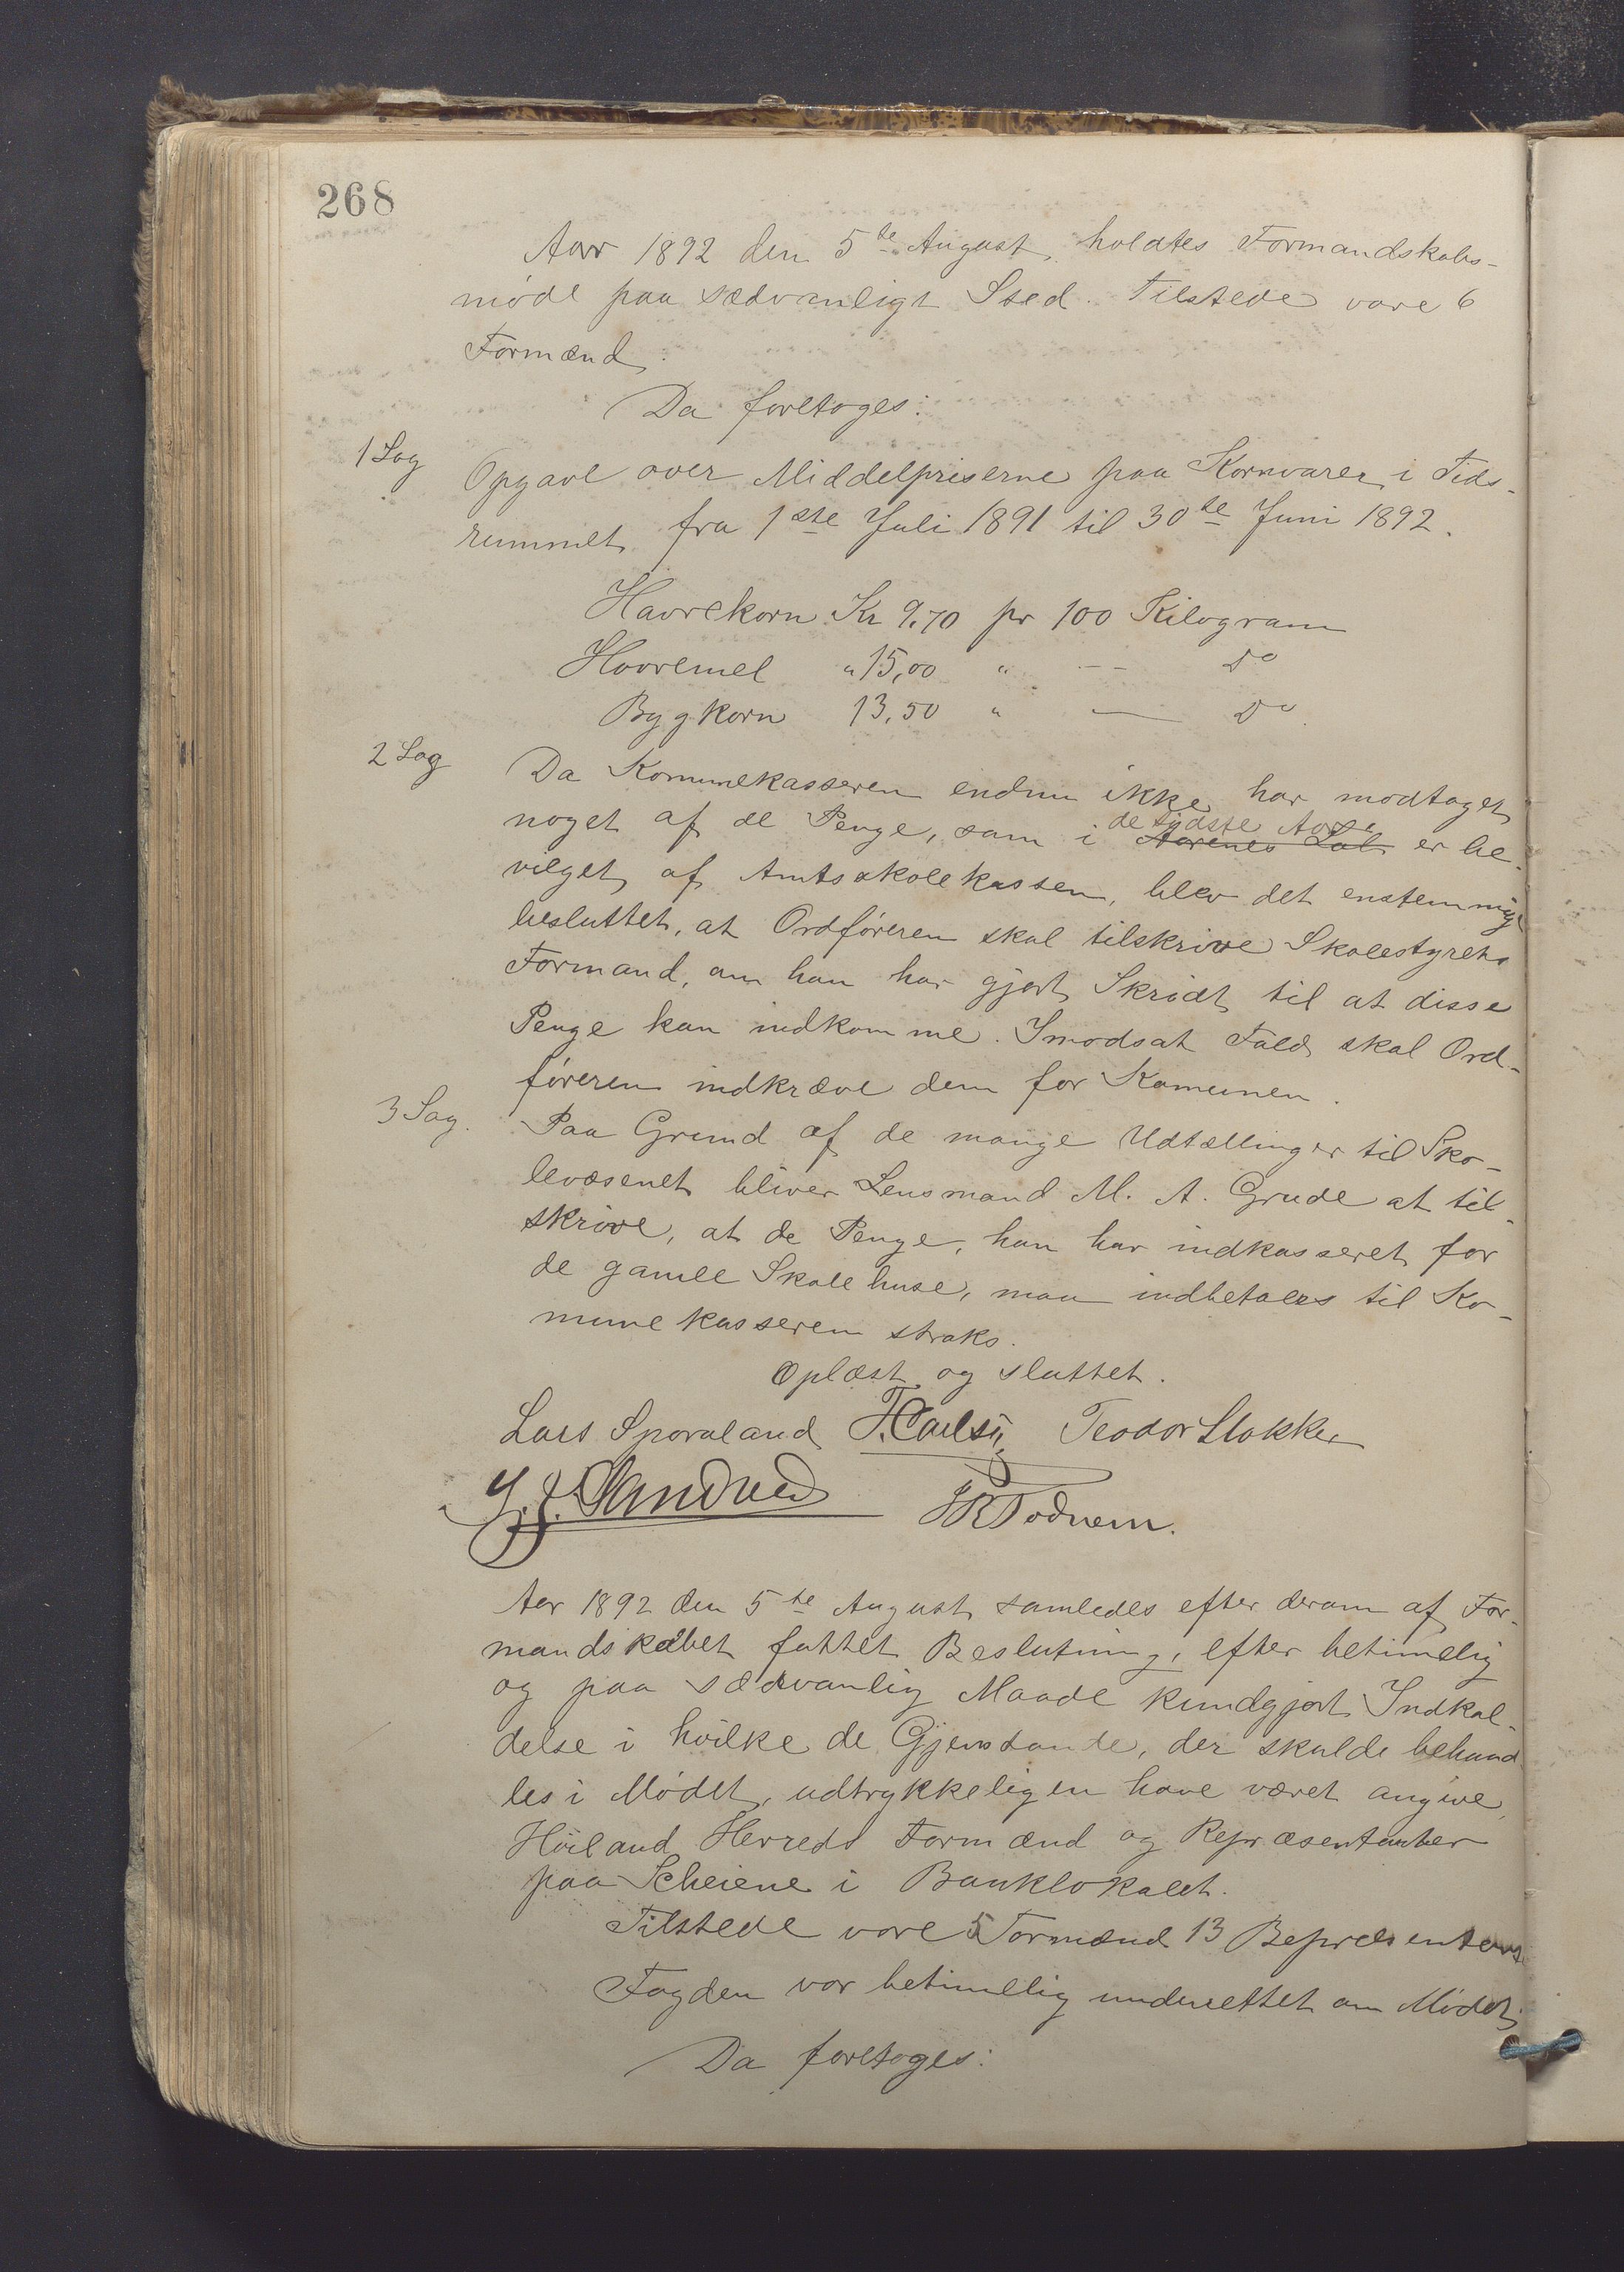 268
Aar 1892 den 5te August holdtes Formandskabs-
møde paa sædvanligt Sted. Tilstede vare 6
Formænd.
Da foretoges:
1 Sag Opgave over Middelpriserne paa Kornvarer i Tids-
rummet fra 1ste Juli 1891 til 30te Juni 1892.
Havrekorn Kr 9,70 pr 100 Kilogram
Havremel " 15,00 " — Do
Bygkorn 13,50 " — Do
2 Sag Da Komunekasseren endnu ikke har modtaget
de sidste Aar
noget af de Penge, som i Aarenes Løb er be-
vilget af Amtsskolekassen, blev det enstemmig
besluttet, at Ordføreren skal tilskrive Skolestyrets
Formand, om han har gjort Skridt til at disse
Penge kan indkomme. Imodsat Fald skal Ord-
føreren indkræve dem for Komunen.
3 Sag. Paa Grund af de mange Udtællinger til Sko-
levæsenet bliver Lensmand M. A. Grude at til-
skrive, at de Penge, han har indkasseret for
de gamle Skolehuse, maa indbetales til Ko-
munekasseren straks.
Oplæst og sluttet.
Lars Sporaland T. Carlsen Teodor Stokke
J. J. Sandved JR Todnem.
Aar 1892 den 5te August samledes efter derom af For-
mandskabet fattet Beslutning, efter betimelig
og paa sædvanlig Maade kundgjort Indkal-
delse i hvilke de Gjenstande, der skulde behand
les i Mødet, udtrykkeligen have været angive,
Høiland Herreds Formænd og Repræsentanter
paa Scheiene i Banklokalet.
Tilstede vare 5 Formænd 13 Repræsentans
Fogden var betimelig underettet om Mødet,
Da foretoges: